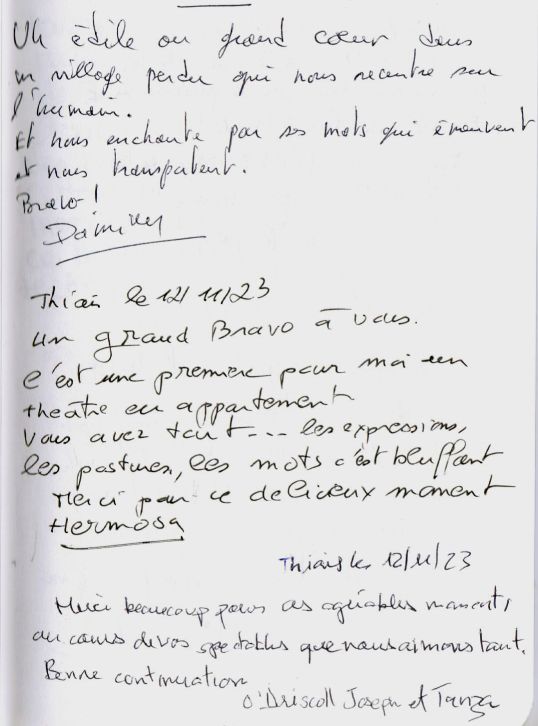 Un édile au grand cœur dans
un village perdu qui nous recentre sur
l'humain.
Et nous enchante par ses mots qui émeuvent
et nous transportent.
Bravo !
Thiais le 12/11/23
un grand Bravo à vous.
C'est une première pour moi un
théâtre en appartement
Vous avez tout... les expressions,
les postures, les mots c'est bluffant
Merci pour ce delicieux moment
Hermosa
Thiais le 12/11/23
Merci beaucoup pour ces agréables moments,
au cours de vos spectacles que nous aimons tant.
Bonne continuation
O'Driscoll Joseph et Tanza